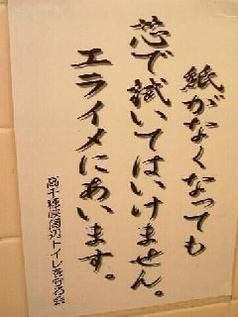 紙がなくなっても
芯で拭いてはいけません。
エライメにあいます。
高千穂峡周辺トイレを守る会